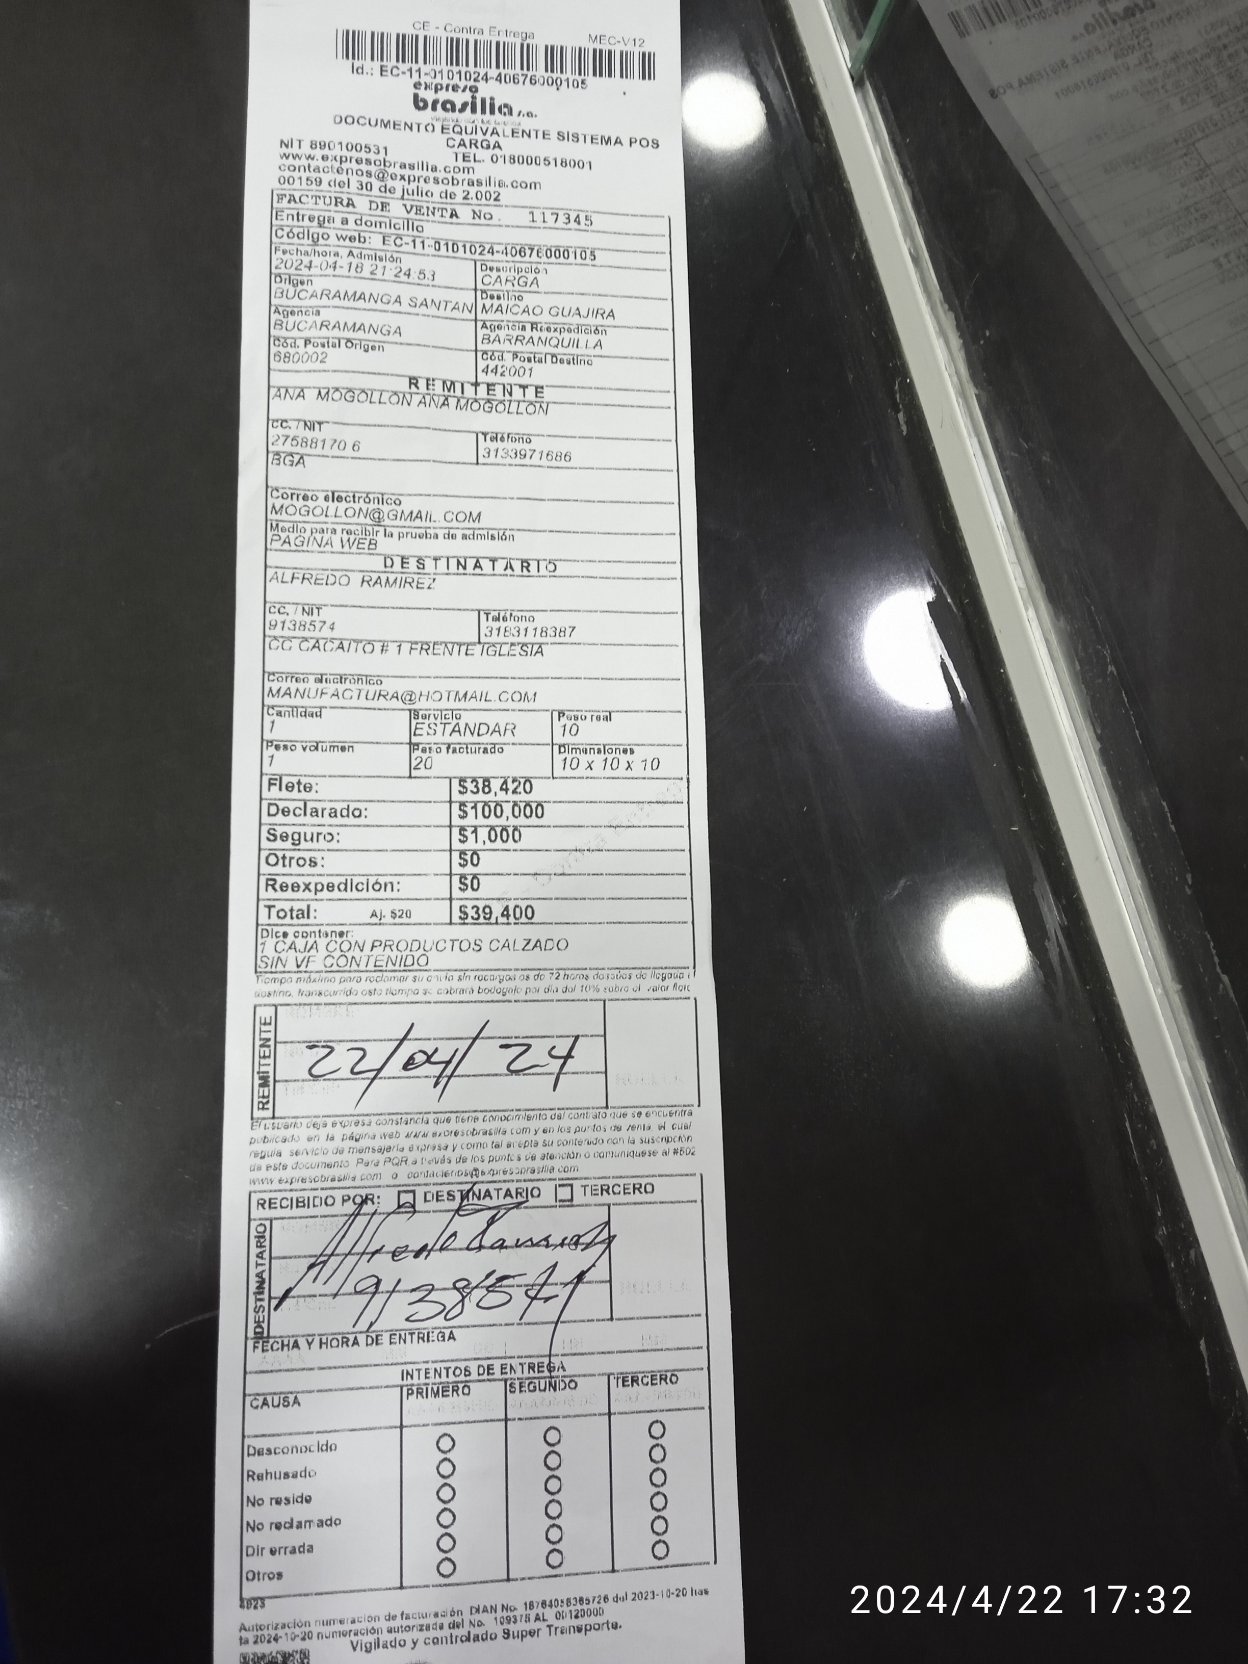 CE - Contra Entrega MEC-V12
Id.: EC-11-0101024-40676000105
expreso
brasilia s.a.
DOCUMENTO EQUIVALENTE SISTEMA POS
CARGA
NIT 890100531 TEL. 018000518001
www.expresobrasilia.com
contactenos@expresobrasilia.com
00159 del 30 de julio de 2.002
FACTURA DE VENTA No. 117345
Entrega a domicilio
Código web: EC-11-0101024-40676000105
Fecha/hora, Admisión Descripción
2024-04-18 21:24:53 CARGA
Origen Destino
BUCARAMANGA SANTAN MAICAO GUAJIRA
Agencia Agencia Reexpedición
BUCARAMANGA BARRANQUILLA
Cód. Postal Origen Cód. Postal Destino
680002 442001
REMITENTE
ANA MOGOLLON ANA MOGOLLON
CC. / NIT Teléfono
27588170 6 3133971686
BGA
Correo electrónico
MOGOLLON@GMAIL.COM
Medio para recibir la prueba de admisión
PAGINA WEB
DESTINATARIO
ALFREDO RAMIREZ
CC. / NIT Teléfono
9138574 3183118387
CC CACAITO # 1 FRENTE IGLESIA
Correo electrónico
MANUFACTURA@HOTMAIL.COM
Cantidad Servicio Peso real
1 ESTANDAR 10
Peso volumen Peso facturado Dimensiones
1 20 10 x 10 x 10
Flete: $38,420
Declarado: $100,000
Seguro: $1,000
Otros: $0
Reexpedición: $0
Total: Aj. $20 $39,400
Dice contener:
1 CAJA CON PRODUCTOS CALZADO
SIN VF CONTENIDO
Tiempo máximo para reclamar su envío sin recargos es de 72 horas después de llegada
destino, transcurrido este tiempo se cobrará bodegaje por día del 10% sobre el valor flete
REMITENTE
22/04/24
El usuario deja expresa constancia que tiene conocimiento del contrato que se encuentra
publicado en la página web www.expresobrasilia.com y en los puntos de venta, el cual
regula servicio de mensajería expresa y como tal acepta su contenido con la suscripción
de este documento Para PQR a través de los puntos de atención o comuníquese al #502
www.expresobrasilia.com o contactenos@expresobrasilia.com
RECIBIDO POR: DESTINATARIO TERCERO
DESTINATARIO
Alfredo Ramirez
9138574
FECHA Y HORA DE ENTREGA
INTENTOS DE ENTREGA
CAUSA PRIMERO SEGUNDO TERCERO
Desconocido
Rehusado
No reside
No reclamado
Dir errada
Otros
4923
Autorización numeración de facturación DIAN No. 18764058365726 del 2023-10-20 has
ta 2024-10-20 numeración autorizada del No. 109375 AL 00120000
Vigilado y controlado Super Transporte.
2024/4/22 17:32